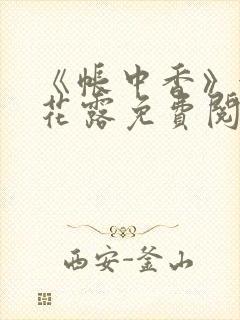 《帐中香》
花露免费阅
西安-釜山